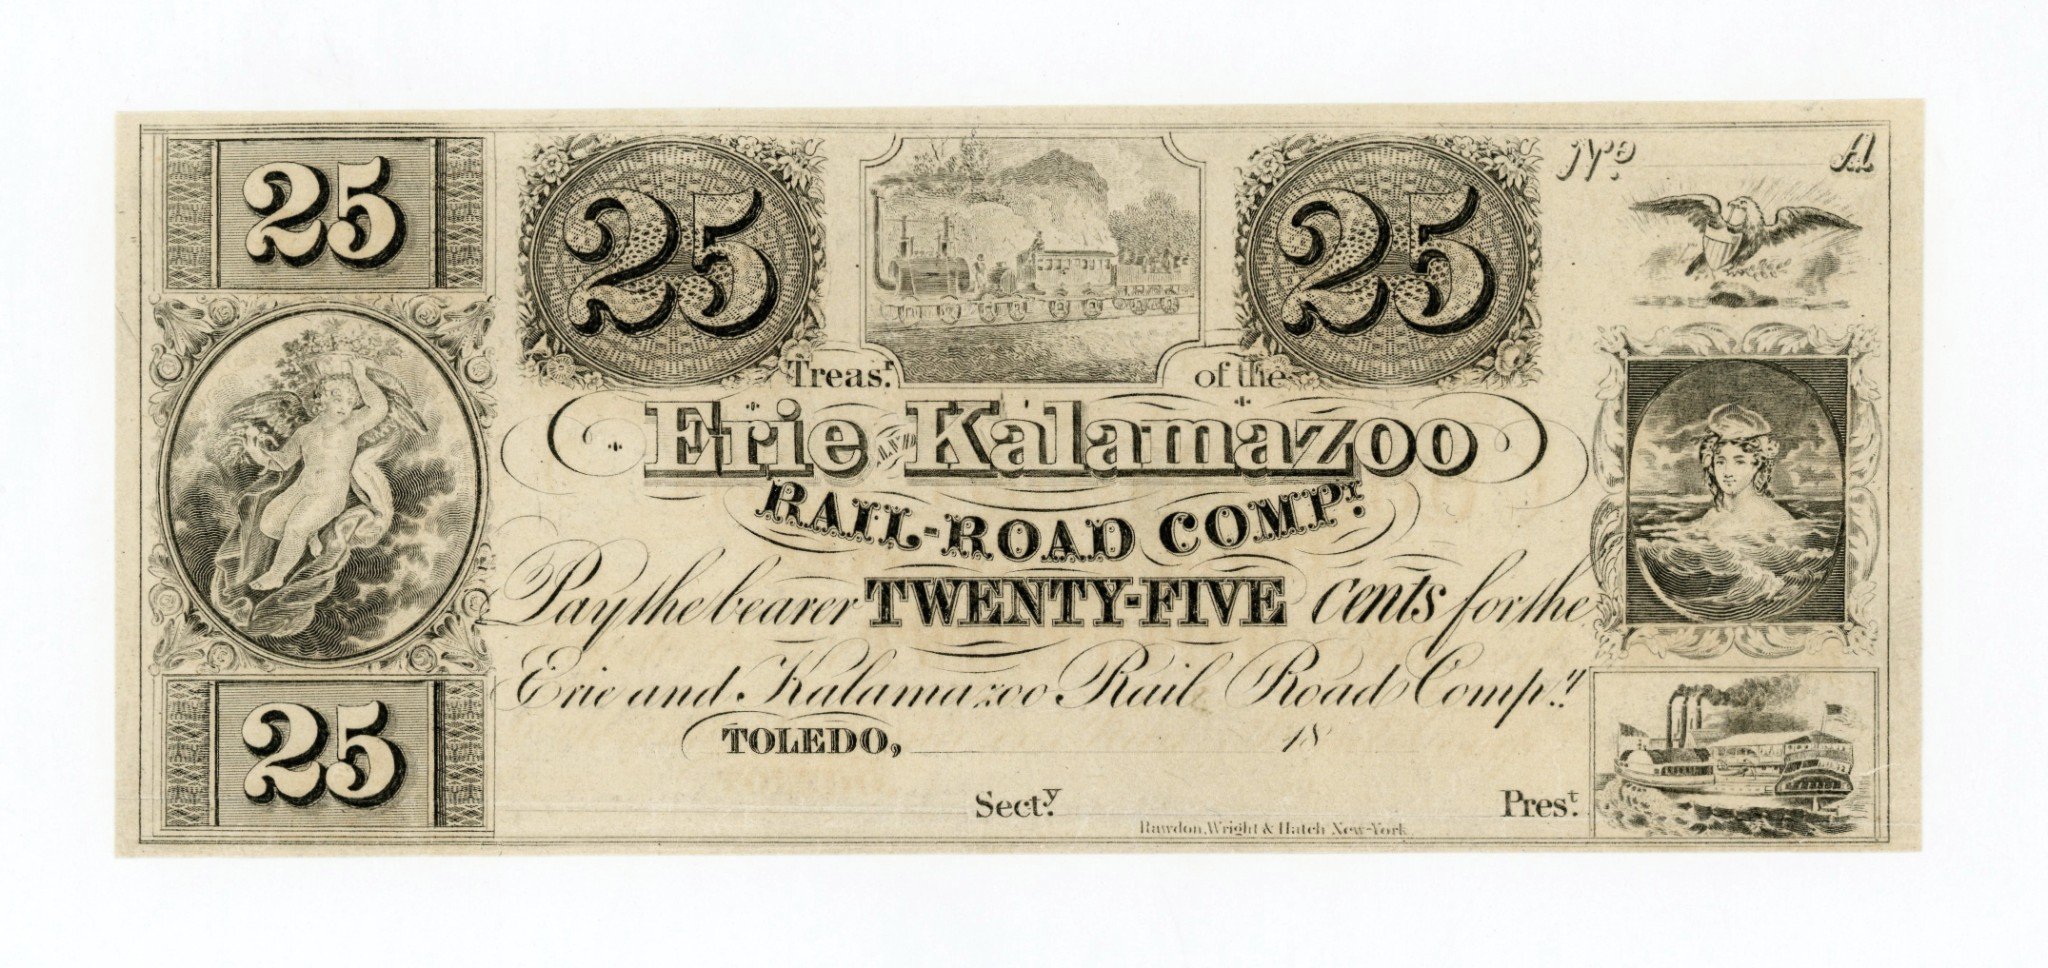 25
25
25
No. A
Treasr. of the
Erie AND Kalamazoo
RAIL-ROAD COMPY.
Pay the bearer TWENTY-FIVE Cents for the
Erie and Kalamazoo Rail Road Compy.
25
TOLEDO, 18
Secty. Prest.
Rawdon, Wright & Hatch New-York